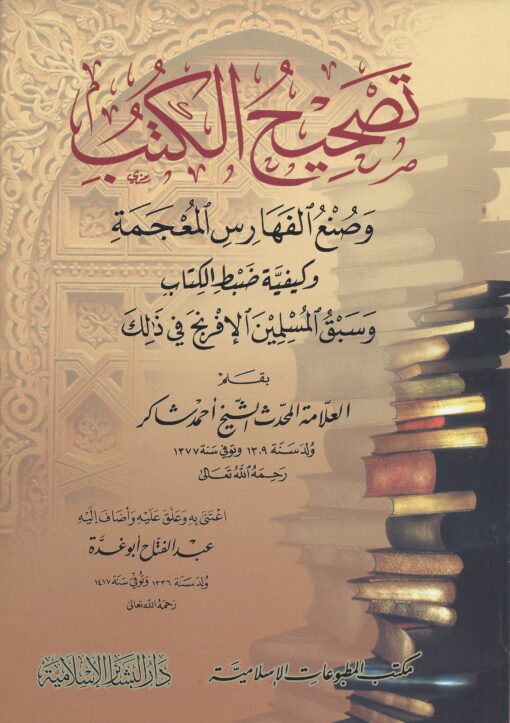 تَصْحِيحُ الكُتُبِ
وَصُنْعُ الفَهَارِسِ المُعْجَمَةِ
وكيفيَّة ضَبْطِ الكِتَابِ
وَسَبْقُ المُسْلِمِيْنَ الإفْرِنْجَ فِي ذَلِكَ
بقلم
العلّامة المحدّث الشيخ أحمد شاكر
وُلد سَنة ١٣٠٩ وتوفي سَنة ١٣٧٧
رَحِمَهُ اللهُ تَعَالَىٰ
اعْتَنَى بِهِ وَعَلَّقَ عَلَيْهِ وَأَضَافَ إِلَيْهِ
عبد الفتاح أبو غدّة
وُلد سَنة ١٣٣٦ وَتُوُفِّيَ سَنَة ١٤١٧
رَحِمَهُ الله تعالىٰ
مكتب المطبوعات الإسلاميّة
دَارُ البشائر الإسلاميّة